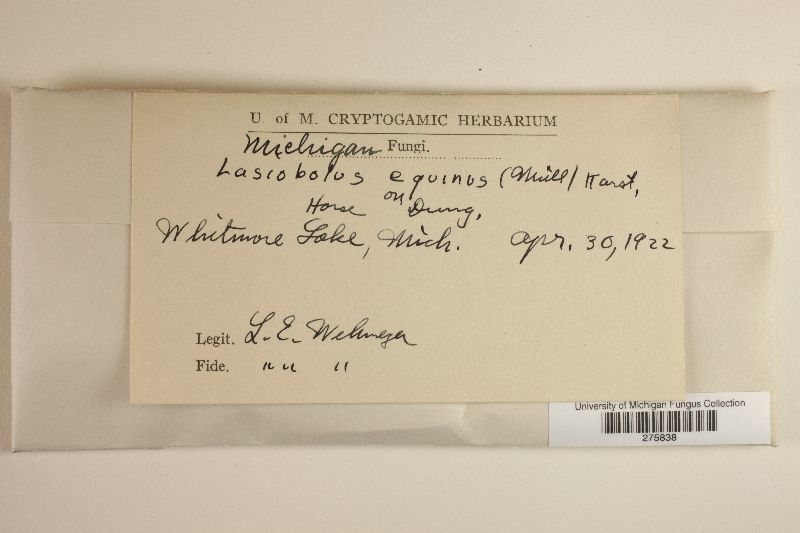 U. of M. CRYPTOGAMIC HERBARIUM
Michigan Fungi.
Lasiobolus equinus (Müll) Karst,
on
Horse Dung,
Whitmore Lake, Mich. Apr. 30, 1922
Legit. L. E. Wehmeyer
Fide. " " "
University of Michigan Fungus Collection
275838